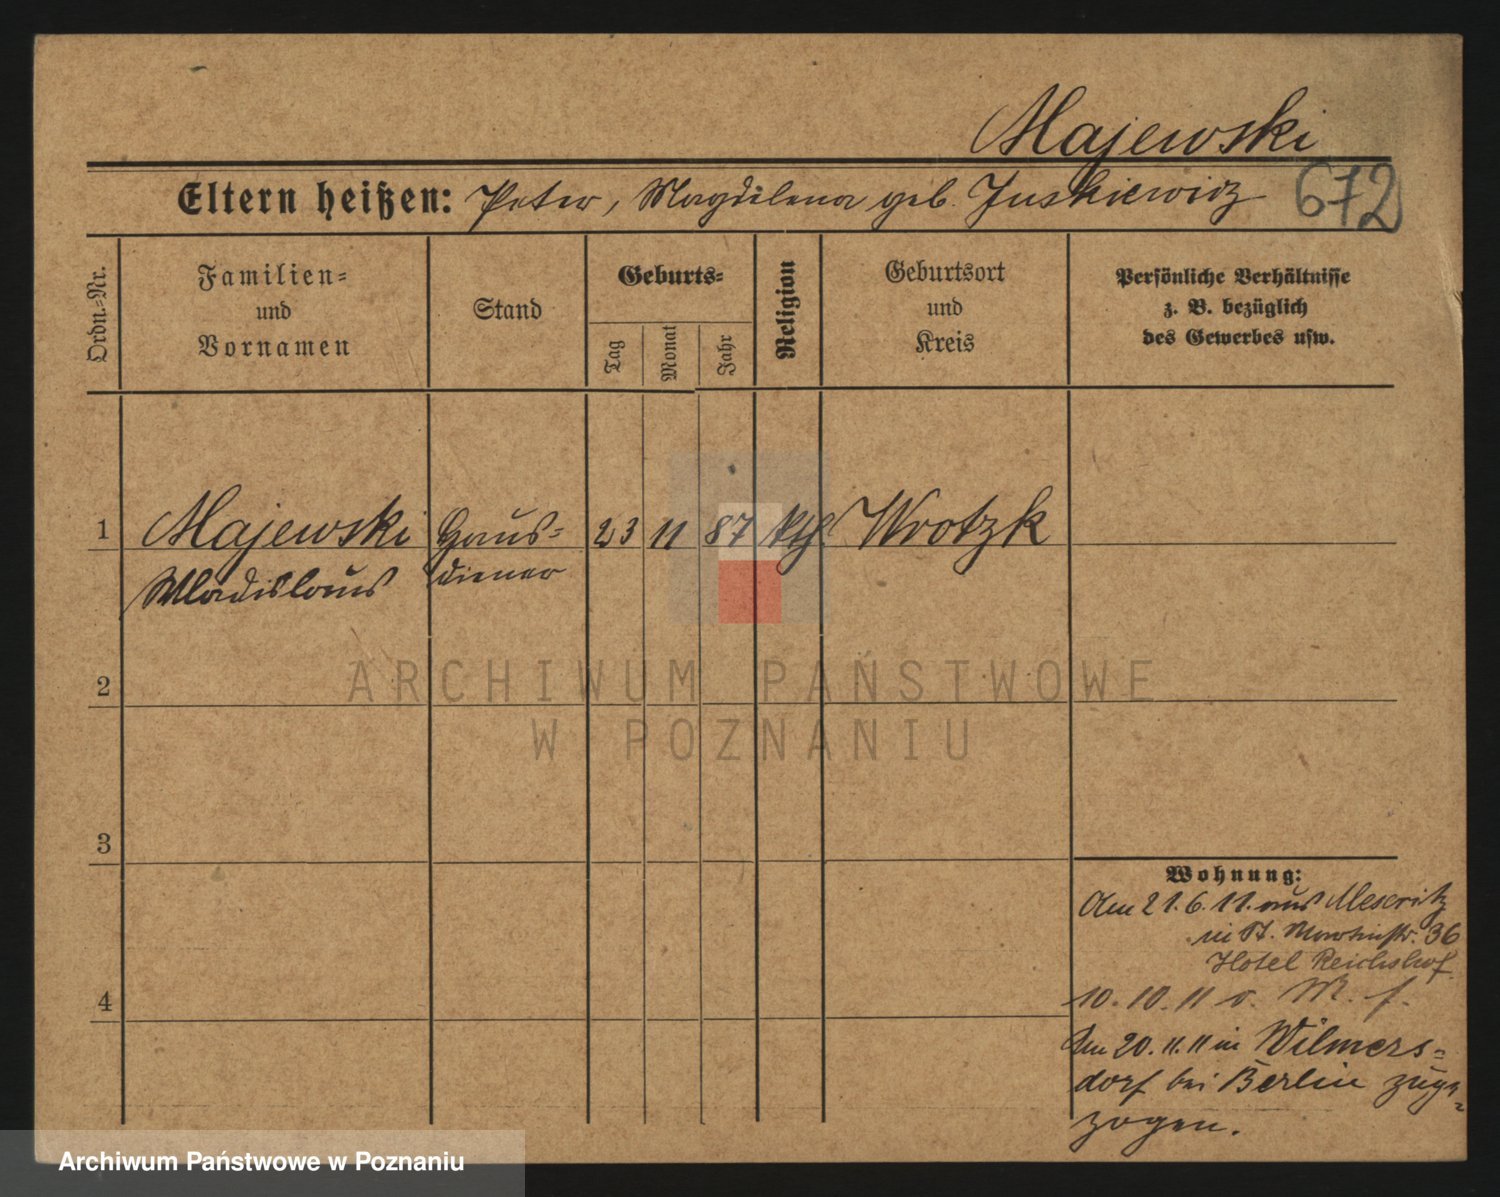 Majewski
Eltern heißen: Peter, Magdalena geb. Juskiewicz 672
Ordn.-Nr.
Familien-
und
Vornamen
Stand
Geburts-
Tag
Monat
Jahr
Religion
Geburtsort
und
Kreis
Persönliche Verhältnisse
z. B. bezüglich
des Gewerbes usw.
1 Majewski Haus- 23 11 87 kth. Wrotzk
Wladislaus diener
2
ARCHIWUM PAŃSTWOWE
W POZNANIU
3
Wohnung:
Am 21.6.11. aus Meseritz
in St. Martinstr. 36
Hotel Reichshof.
4
10.10.11 v.
Am 20.11.11 in Wilmers-
dorf bei Berlin zuge-
zogen.
Archiwum Państwowe w Poznaniu